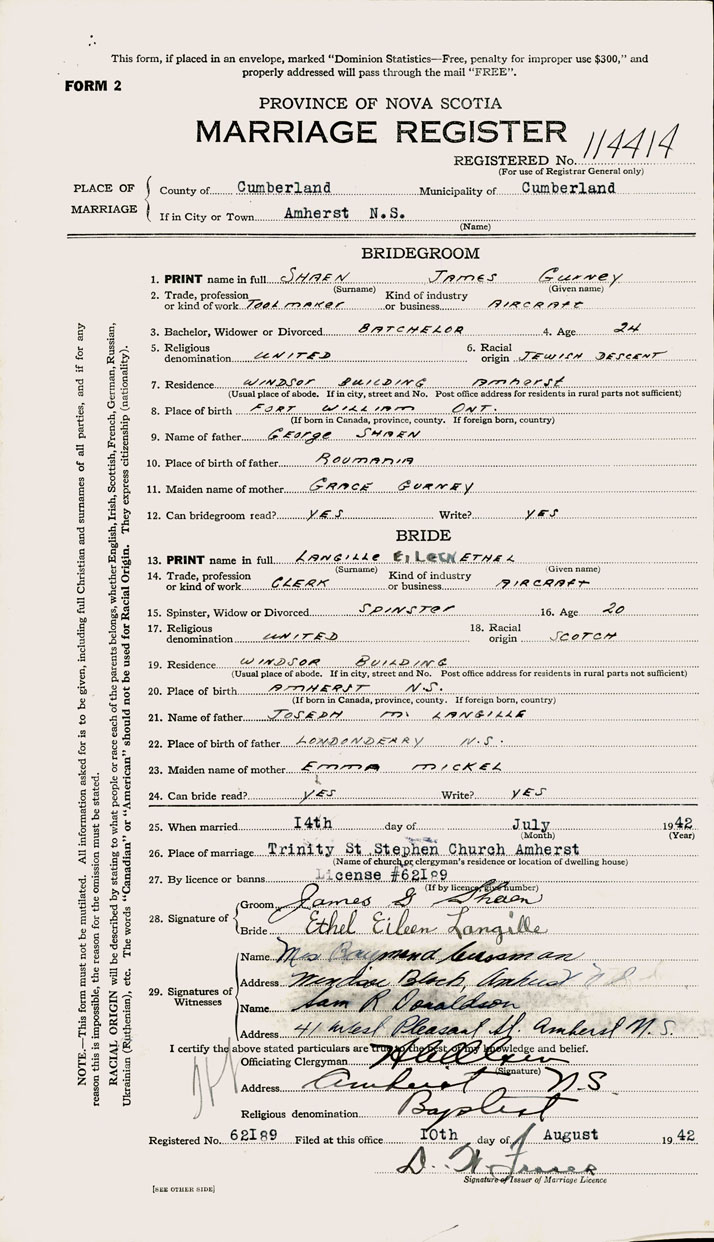 This form, if placed in an envelope, marked "Dominion Statistics—Free, penalty for improper use $300," and
properly addressed will pass through the mail "FREE".
FORM 2
PROVINCE OF NOVA SCOTIA
MARRIAGE REGISTER
REGISTERED No. 114414
(For use of Registrar General only)
PLACE OF MARRIAGE
County of Cumberland Municipality of Cumberland
If in City or Town Amherst N.S.
(Name)
BRIDEGROOM
1. PRINT name in full SHAEN JAMES GURNEY
(Surname) (Given name)
2. Trade, profession or kind of work TOOL MAKER Kind of industry or business AIRCRAFT
3. Bachelor, Widower or Divorced BATCHELOR 4. Age 24
5. Religious denomination UNITED 6. Racial origin JEWISH DESCENT
7. Residence WINDSOR BUILDING Amherst
(Usual place of abode. If in city, street and No. Post office address for residents in rural parts not sufficient)
8. Place of birth FORT WILLIAM ONT.
(If born in Canada, province, county. If foreign born, country)
9. Name of father GEORGE SHAEN
10. Place of birth of father ROUMANIA
11. Maiden name of mother GRACE GURNEY
12. Can bridegroom read? YES Write? YES
BRIDE
13. PRINT name in full LANGILLE EILEEN ETHEL
(Surname) (Given name)
14. Trade, profession or kind of work CLERK Kind of industry or business AIRCRAFT
15. Spinster, Widow or Divorced SPINSTER 16. Age 20
17. Religious denomination UNITED 18. Racial origin SCOTCH
19. Residence WINDSOR BUILDING
(Usual place of abode. If in city, street and No. Post office address for residents in rural parts not sufficient)
20. Place of birth AMHERST N.S.
(If born in Canada, province, county. If foreign born, country)
21. Name of father JOSEPH M. LANGILLE
22. Place of birth of father LONDONDERRY N.S.
23. Maiden name of mother EMMA MICKEL
24. Can bride read? YES Write? YES
25. When married I4th day of July 1942
(Month) (Year)
26. Place of marriage Trinity St Stephen Church Amherst
(Name of church, or clergyman's residence or location of dwelling house)
27. By licence or banns License #62I89
(If by licence, give number)
28. Signature of
Groom James G Shaen
Bride Ethel Eileen Langille
29. Signatures of Witnesses
Name Mrs Raymond
Address Windsor Block, Amherst N S
Name Sam R Donaldson
Address 41 West Pleasant St. Amherst N.S.
I certify the above stated particulars are true to the best of my knowledge and belief.
Officiating Clergyman
(Signature)
Address Amherst N.S.
Religious denomination Baptist
Registered No. 62I89 Filed at this office I0th day of August 1942
D. W. Fraser
Signature of Issuer of Marriage Licence
[SEE OTHER SIDE]
NOTE.—This form must not be mutilated. All information asked for is to be given, including full Christian and surnames of all parties, and if for any
reason this is impossible, the reason for the omission must be stated.
RACIAL ORIGIN will be described by stating to what people or race each of the parents belongs, whether English, Irish, Scottish, French, German, Russian,
Ukrainian (Ruthenian), etc. The words "Canadian" or "American" should not be used for Racial Origin. They express citizenship (nationality).